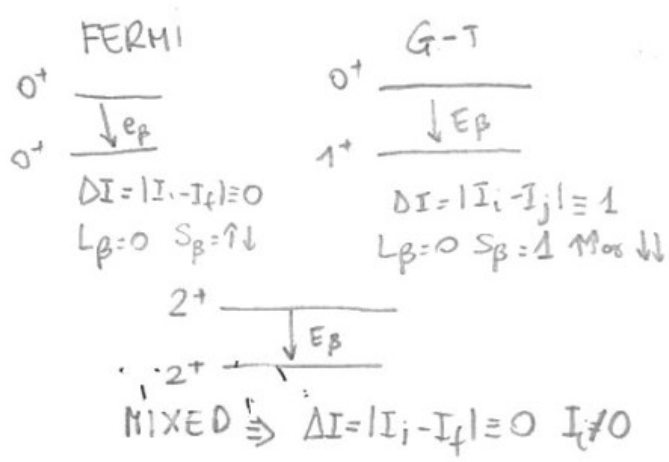 FERMI
0⁺
e_β
0⁺
ΔI=|I_i-I_f|≡0
L_β=0 S_β=↑↓
G-T
0⁺
E_β
1⁺
ΔI=|I_i-I_j|≡1
L_β=0 S_β=1 ↑↑ or ↓↓
2⁺
E_β
2⁺
MIXED ⇒ ΔI=|I_i-I_f|≡0 I_i≠0